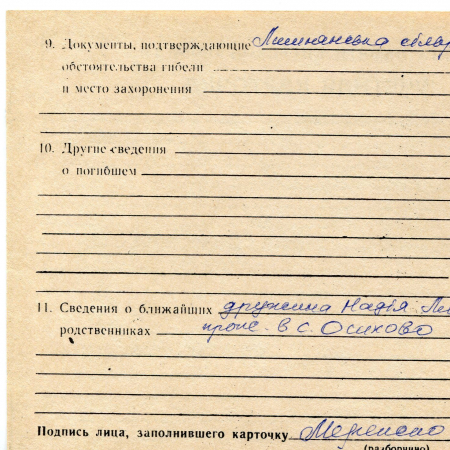 9. Документы, подтверждающие
обстоятельства гибели
и место захоронения
10. Другие сведения
о погибшем
11. Сведения о ближайших дружина Надія
родственниках прож. в с. Осиково
Подпись лица, заполнившего карточку
(разборчиво)